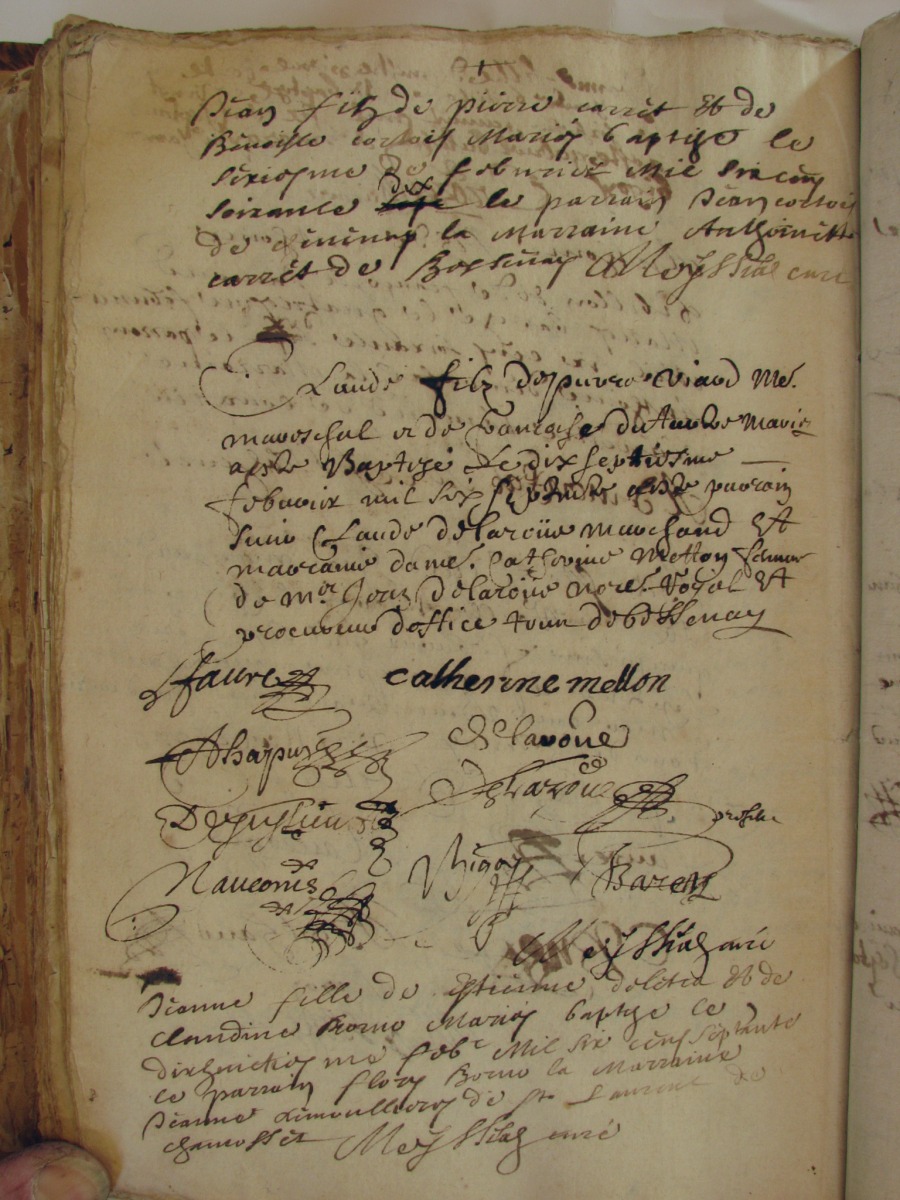 Jean filz de pierre carret et de
Benoiste cortois Mariés baptisé le
sixiesme de febvrier Mil six cens
soixante dix le parrain Jean cortois
de la Marraine Anthoinette
carret de Bessenay Meyssiat curé
Claude filz de pierre viand Me.
mareschal et de francoise du mariez
a este Baptizé Le dix septiesme
febvrier mil six septante este parrain
sieur Claude delaroüe marchand Et
marraine dame. Catherine Mellon femme
de Mr Jean delaroüe nore. Royal Et
procureur d'office de bessenay
faure catherine mellon
Delaroüe
Delaroüe
presente
Nauconis Bigot Baren
Meyssiat curé
Jeanne fille de Estienne et de
claudine Borno Mariés baptisée le
dixhuictiesme febr Mil six cens septante
le parrain fleury Borno la Marraine
Jeanne de st Laurent de
chamosset Meyssiat curé